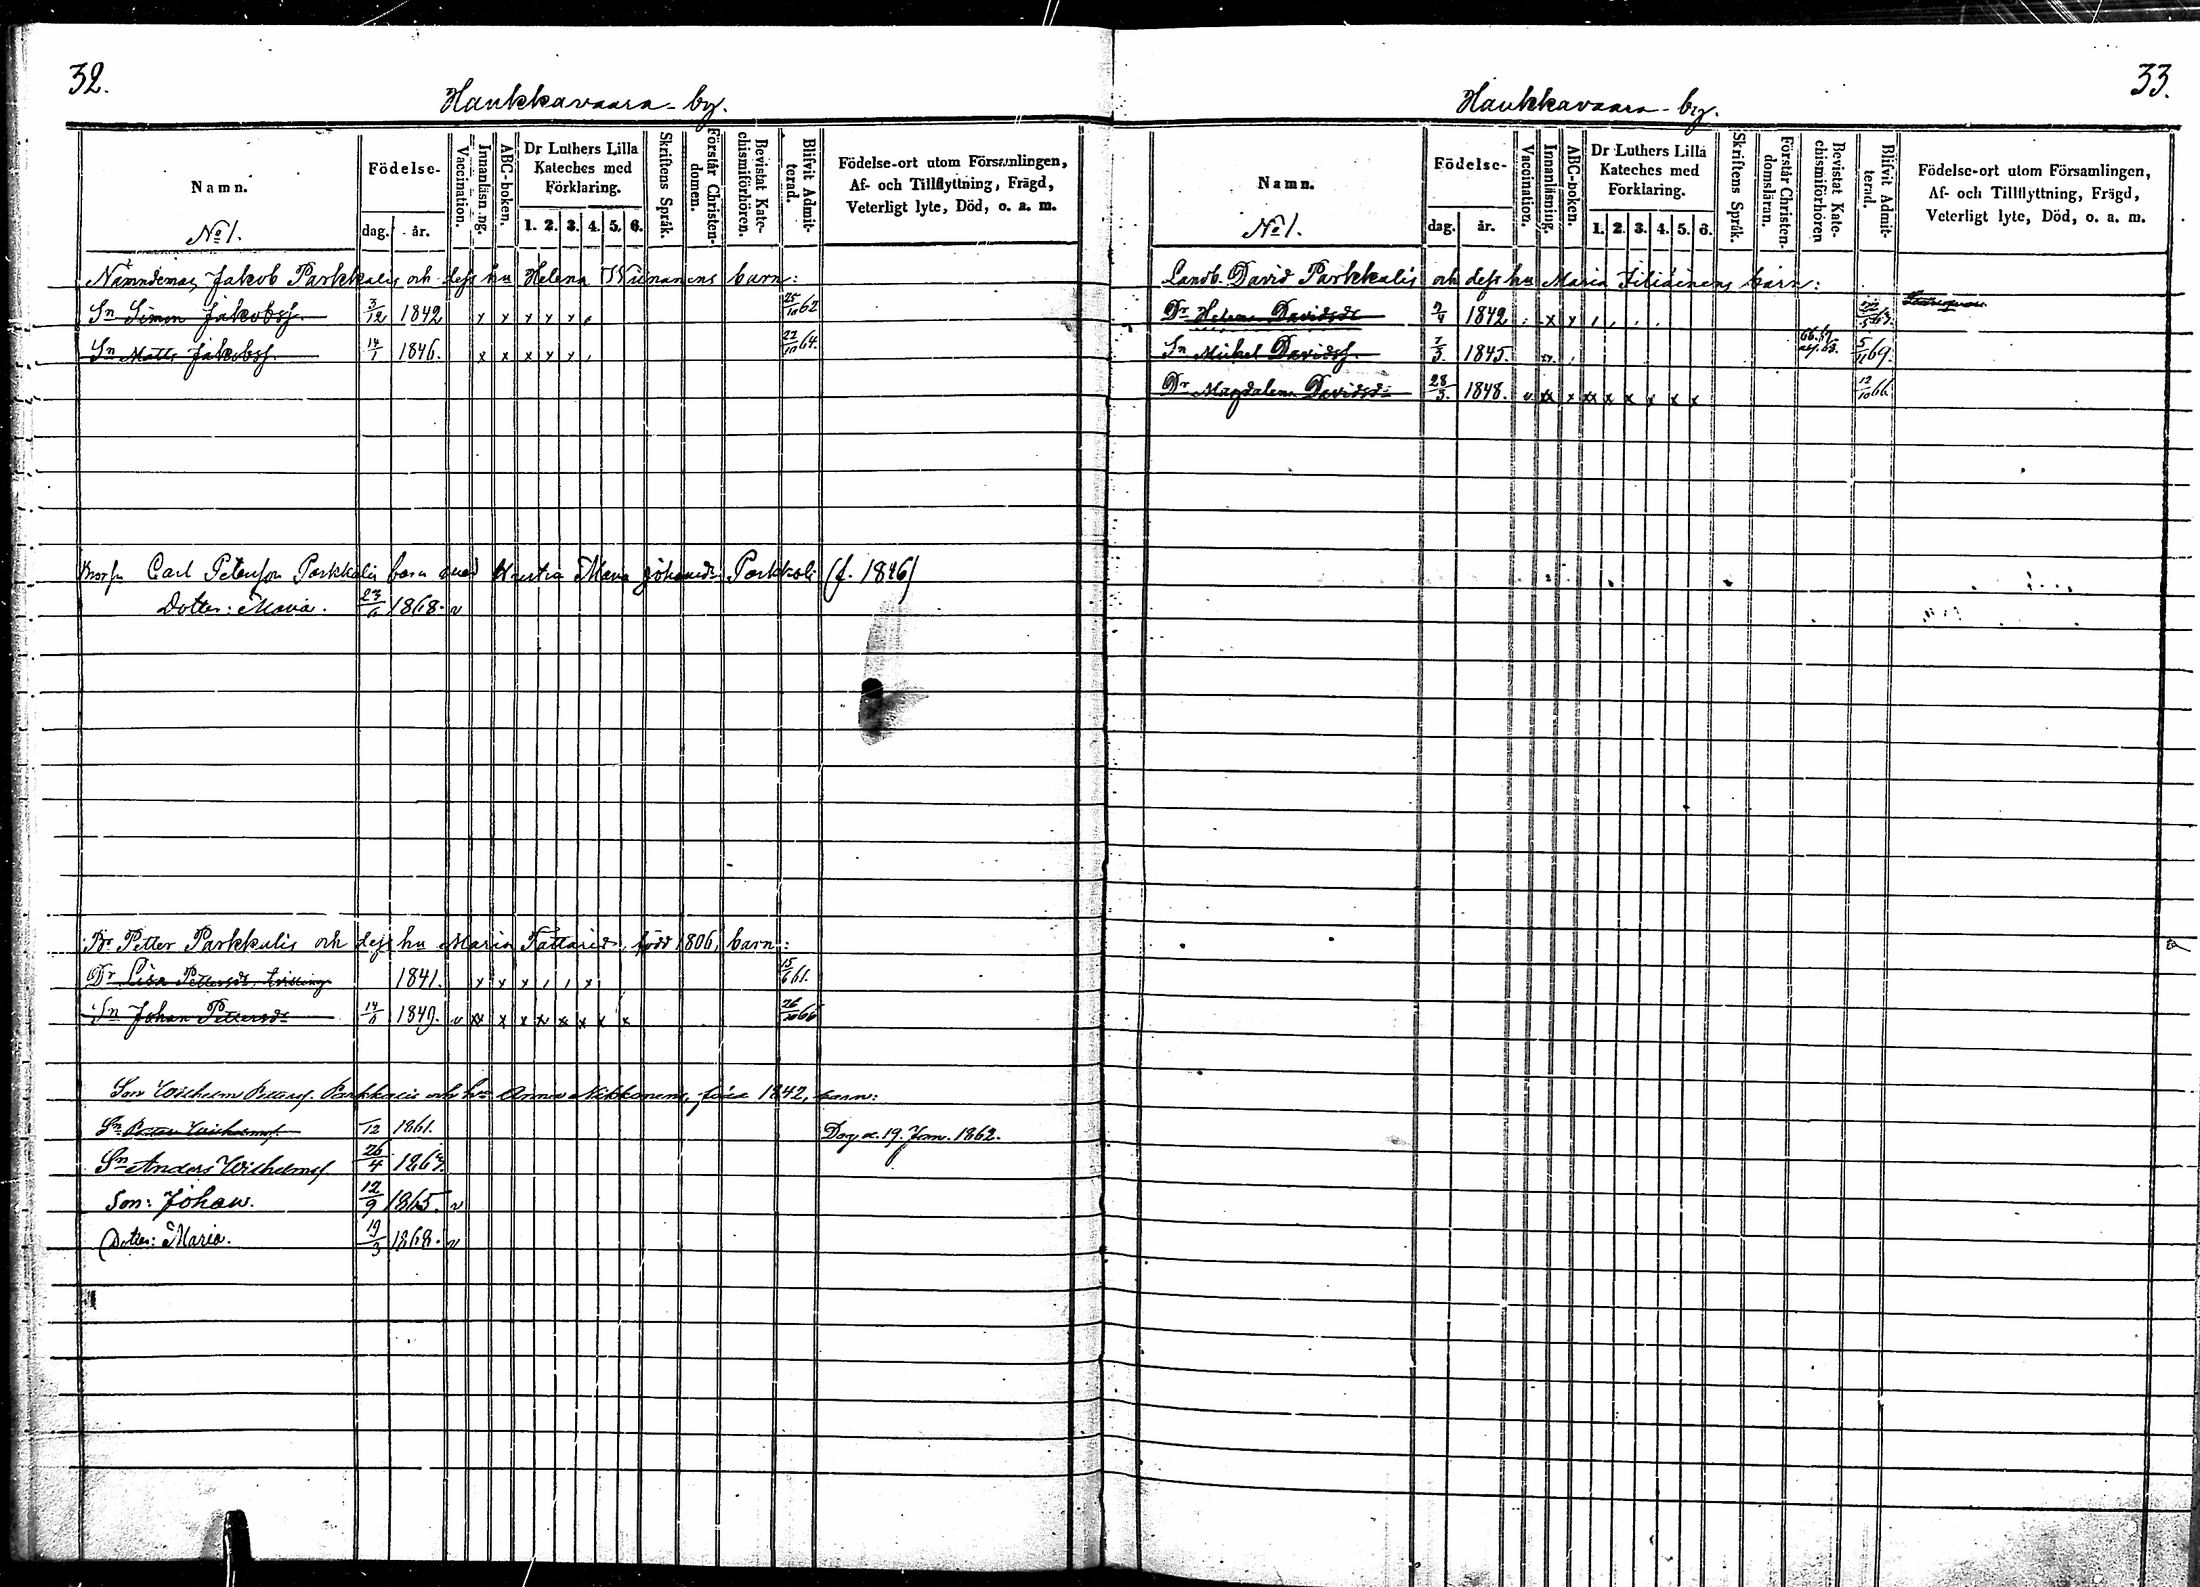 32.
Haukkavaara-by.
Namn.
Födelse-
dag. år.
Vaccination.
Innanläsning.
ABC-boken.
Dr Luthers Lilla Kateches med Förklaring.
1. 2. 3. 4. 5. 6.
Skriftens Språk.
Förstår Christen-domen.
Bevistat Kate-chismiförhören.
Blifvit Admit-terad.
Födelse-ort utom Församlingen,
Af- och Tillflyttning, Frägd,
Veterligt lyte, Död, o. a. m.
No 1.
Nämndeman Jakob Parkkalis och dess hu Helena barn:
Sn Simon Jakobss. 3/12 1842 x x x x x , 25/10 62
Sn Matts Jakobss. 14/1 1846. x x x x x , 22/10 64.
Carl Peterson Parkkalis barn med Maria Johansdr Parkkoli (f. 1846)
Dotter: Maria. 23/6 1868. v
Br Petter Parkkalis och dess hu Maria Tattarids, född 1806, barn:
Dr Lisa Pettersdr 1841. x x x , , x 15/6 61.
Sn Johan Pettersd 14/6 1849. v xx x x xx x x x 26/10 66
Son Wilhelm Petters. Parkkalis och hu Anna Nikkonens, född 1842, barn:
Sn Wilhelmss. /12 1861. Dog d. 19. Jan. 1862.
Sn Anders Wilhelmss 26/4 1863.
Son: Johan. 12/9 1865. v
Dotter: Maria. 19/3 1868. v
33.
Haukkavaara-by.
Namn.
Födelse-
dag. år.
Vaccination.
Innanläsning.
ABC-boken.
Dr Luthers Lilla Kateches med Förklaring.
1. 2. 3. 4. 5. 6.
Skriftens Språk.
Förstår Christen-domsläran.
Bevistat Kate-chismiförhören
Blifvit Admit-terad.
Födelse-ort utom Församlingen,
Af- och Tillflyttning, Frägd,
Veterligt lyte, Död, o. a. m.
No 1.
Landb. David Parkkalis och dess hu Maria Filiäinens barn:
Dr Helena Davidsdr 7/4 1842 . x x , , , ,
Sn Mickel Davidss. 7/3 1845. 5/11 69.
Dr Magdalena Davidsdr 28/3 1848. v xx x xx x x x x x 12/10 66